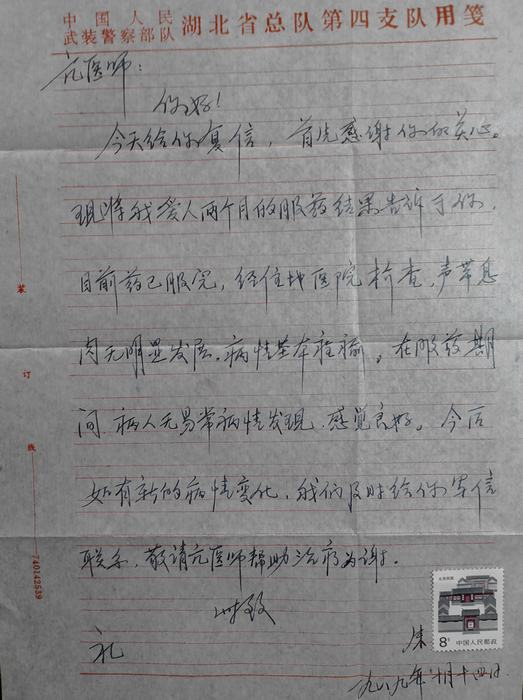 中国人民
武装警察部队 湖北省总队第四支队用笺
亢医师：
你好！
今天给你复信，首先感谢你的关心。
现将我爱人两个月的服药结果告诉于你，
目前药已服完，经住地医院检查，声带息
肉无明显发展，病情基本在愈。在服药期
间病人无易常病情发现，感觉良好。今后
如有新的病情变化，我们及时给你写信
联系，敬请亢医师帮助治疗为谢。
此致
礼
陈
一九八九年十月十四日
装
订
线
740142539
北京民居
8分 中国人民邮政